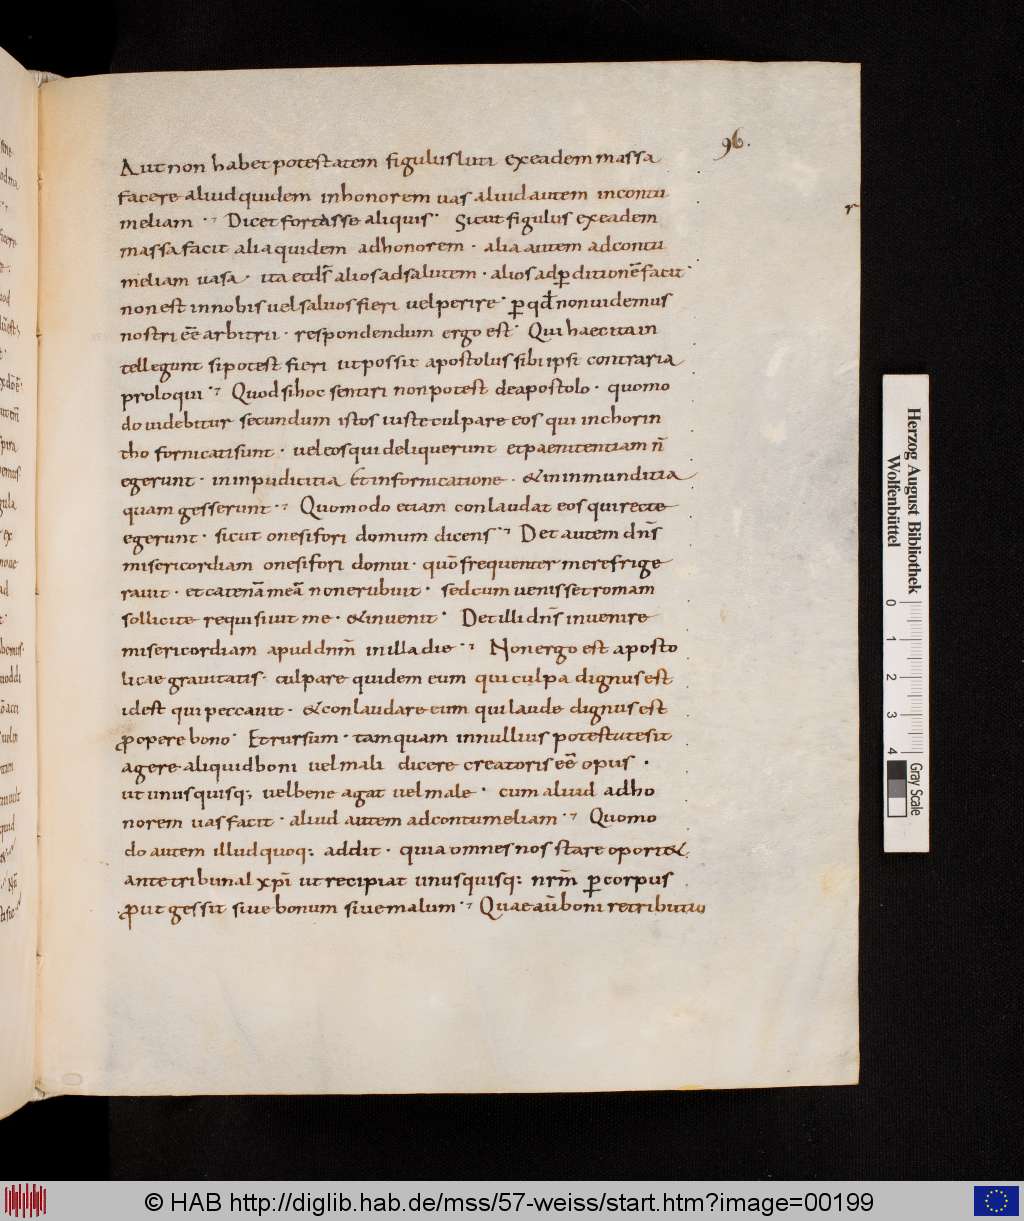 96.
Aut non habet potestatem figulus luti ex eadem massa
facere aliud quidem inhonorem uas aliud autem incontu
meliam · Dicet fortasse aliquis · Sicut figulus ex eadem
massa facit alia quidem adhonorem · alia autem adcontu
meliam uasa · ita et d̅s̅ alios adsalutem · alios adꝑditionē facit ·
non est innobis uel saluos fieri uel perire · ꝑ qđ non uidemus
nostri eē arbitrii · respondendum ergo est · Qui haec ita in
tellegunt si potest fieri ut possit apostolus sibi ipsi contraria
proloqui · Quod si hoc sentiri non potest de apostolo · quomo
do uidebitur secundum istos iuste culpare eos qui inchorin
tho fornicati sunt · uel eos qui deliquerunt et paenitentiam n̄
egerunt · in inpudicitia Et infornicatione · & in inmunditia
quam gesserunt · Quomodo etiam conlaudat eos qui recte
egerunt · sicut onesifori domum dicens · Det autem dn̄s
misericordiam onesifori domui · quō frequenter me refrige
rauit · et catenā meā non erubuit · sed cum uenisset romam
sollicite requisiuit me · & inuenit · Det illi dn̄s inuenire
misericordiam apud dnm̄ in illa die · Non ergo est aposto
licae grauitatis · culpare quidem eum qui culpa dignus est
id est qui peccauit · & conlaudare eum qui laude dignus est
ꝓ opere bono · Et rursum · tamquam in nullius potestate sit
agere aliquid boni uel mali dicere creatoris eē opus ·
ut unusquisq; uel bene agat uel male · cum aliud adho
norem uas facit · aliud autem adcontumeliam · Quomo
do autem illud quoq; addit · quia omnes nos stare oport&
ante tribunal xp̄i ut recipiat unusquisq; nrm̄ ꝑ corpus
ꝓut gessit siue bonum siue malum · Quae aū boni retributio
r
Herzog August Bibliothek
Wolfenbüttel
0 1 2 3 4
Gray Scale
© HAB http://diglib.hab.de/mss/57-weiss/start.htm?image=00199